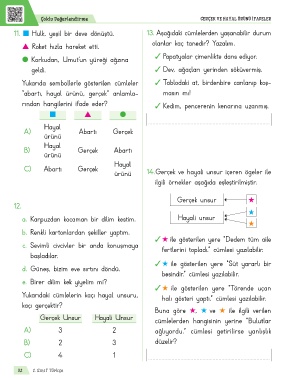 Çoklu Değerlendirme
GERÇEK VE HAYAL ÜRÜNÜ İFADELER
11. Hulk, yeşil bir deve dönüştü.
Roket hızla hareket etti.
Korkudan, Umut'un yüreği ağzına
geldi.
Yukarıda sembollerle gösterilen cümleler
"abartı, hayal ürünü, gerçek" anlamla-
rından hangilerini ifade eder?
A) Hayal ürünü Abartı Gerçek
B) Hayal ürünü Gerçek Abartı
C) Abartı Gerçek Hayal ürünü
12.
a. Karpuzdan kocaman bir dilim kestim.
b. Renkli kartonlardan şekiller yaptım.
c. Sevimli civcivler bir anda konuşmaya
başladılar.
d. Güneş, bizim eve sırtını döndü.
e. Birer dilim kek yiyelim mi?
Yukarıdaki cümlelerin kaçı hayal unsuru,
kaçı gerçektir?
Gerçek Unsur Hayali Unsur
A) 3 2
B) 2 3
C) 4 1
13. Aşağıdaki cümlelerden yaşanabilir durum
olanlar kaç tanedir? Yazalım.
✓ Papatyalar çimenlikte dans ediyor.
✓ Dev, ağaçları yerinden sökivermiş.
✓ Tablodaki at, birdenbire canlanıp koş-
masın mı!
✓ Kedim, pencerenin kenarına uzanmış.
14. Gerçek ve hayali unsur içeren ögeler ile
ilgili örnekler aşağıda eşleştirilmiştir.
Gerçek unsur
Hayali unsur
✓ ★ ile gösterilen yere "Dedem tüm aile
fertlerini topladı." cümlesi yazılabilir.
✓ ★ ile gösterilen yere "Süt yararlı bir
besindir." cümlesi yazılabilir.
✓ ★ ile gösterilen yere "Törende uçan
halı gösteri yaptı." cümlesi yazılabilir.
Buna göre ★, ★ ve ★ ile ilgili verilen
cümlelerden hangisinin yerine "Bulutlar
ağlıyordu." cümlesi getirilirse yanlışlık
düzelir?
2. Sınıf Türkçe